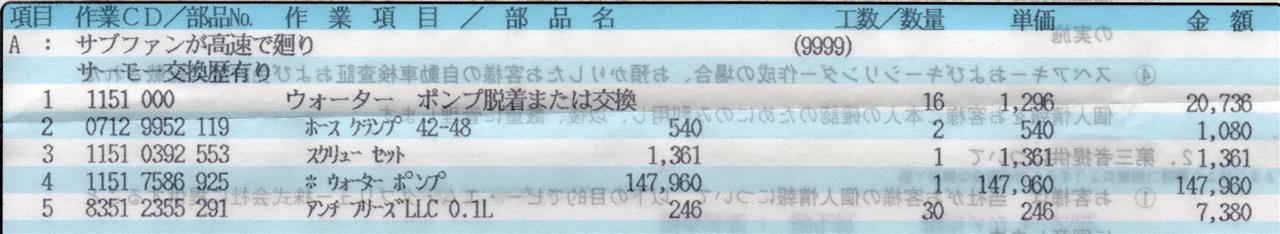 項目 作業CD／部品No. 作 業 項 目 ／ 部 品 名 工数／数量 単価 金 額
A : サブファンが高速で廻り (9999)
サーモ 交換歴有り
1 1151 000 ウォーター ポンプ脱着または交換 16 1,296 20,736
2 0712 9952 119 ﾎｰｽ ｸﾗﾝﾌﾟ 42-48 540 2 540 1,080
3 1151 0392 553 ｽｸﾘｭｰ ｾｯﾄ 1,361 1 1,361 1,361
4 1151 7586 925 * ｳｫｰﾀｰ ﾎﾟﾝﾌﾟ 147,960 1 147,960 147,960
5 8351 2355 291 ｱﾝﾁ ﾌﾘｰｽﾞLLC 0.1L 246 30 246 7,380